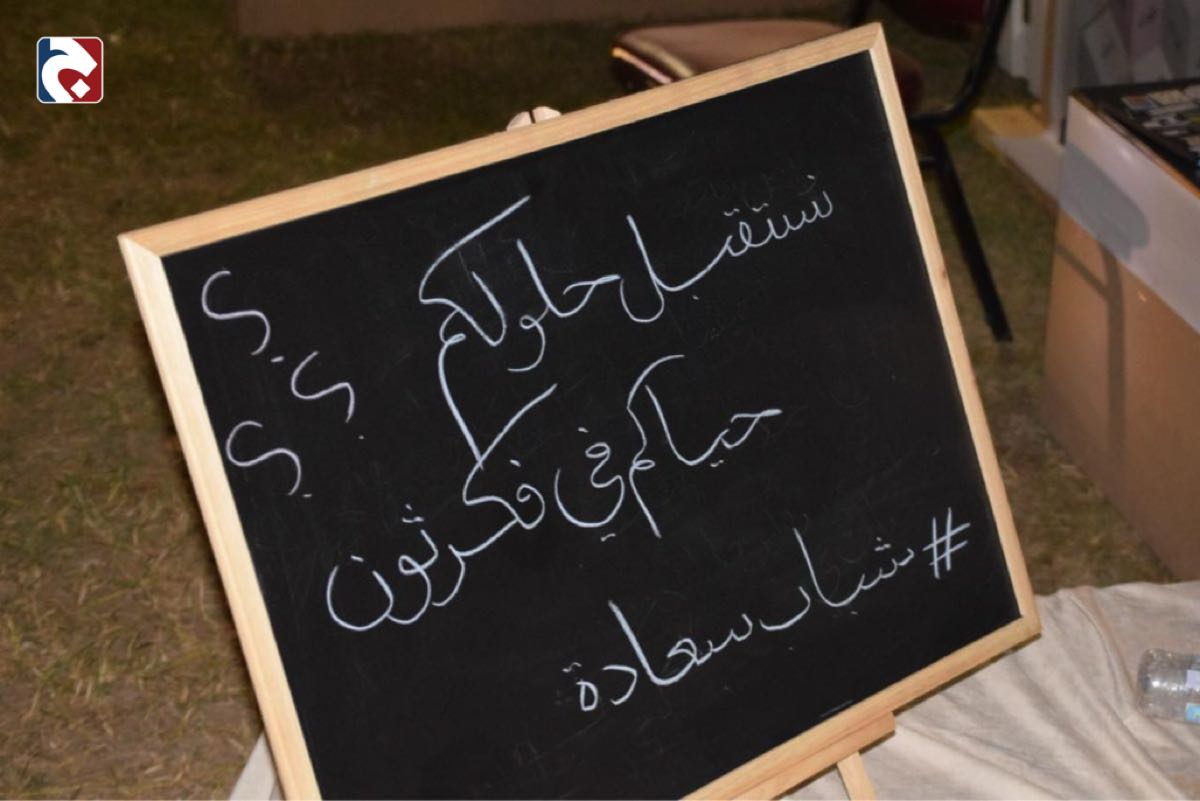 نستقبل حلولكم
حياكم في فكرثون
#شباب سعادة
؟
؟
؟